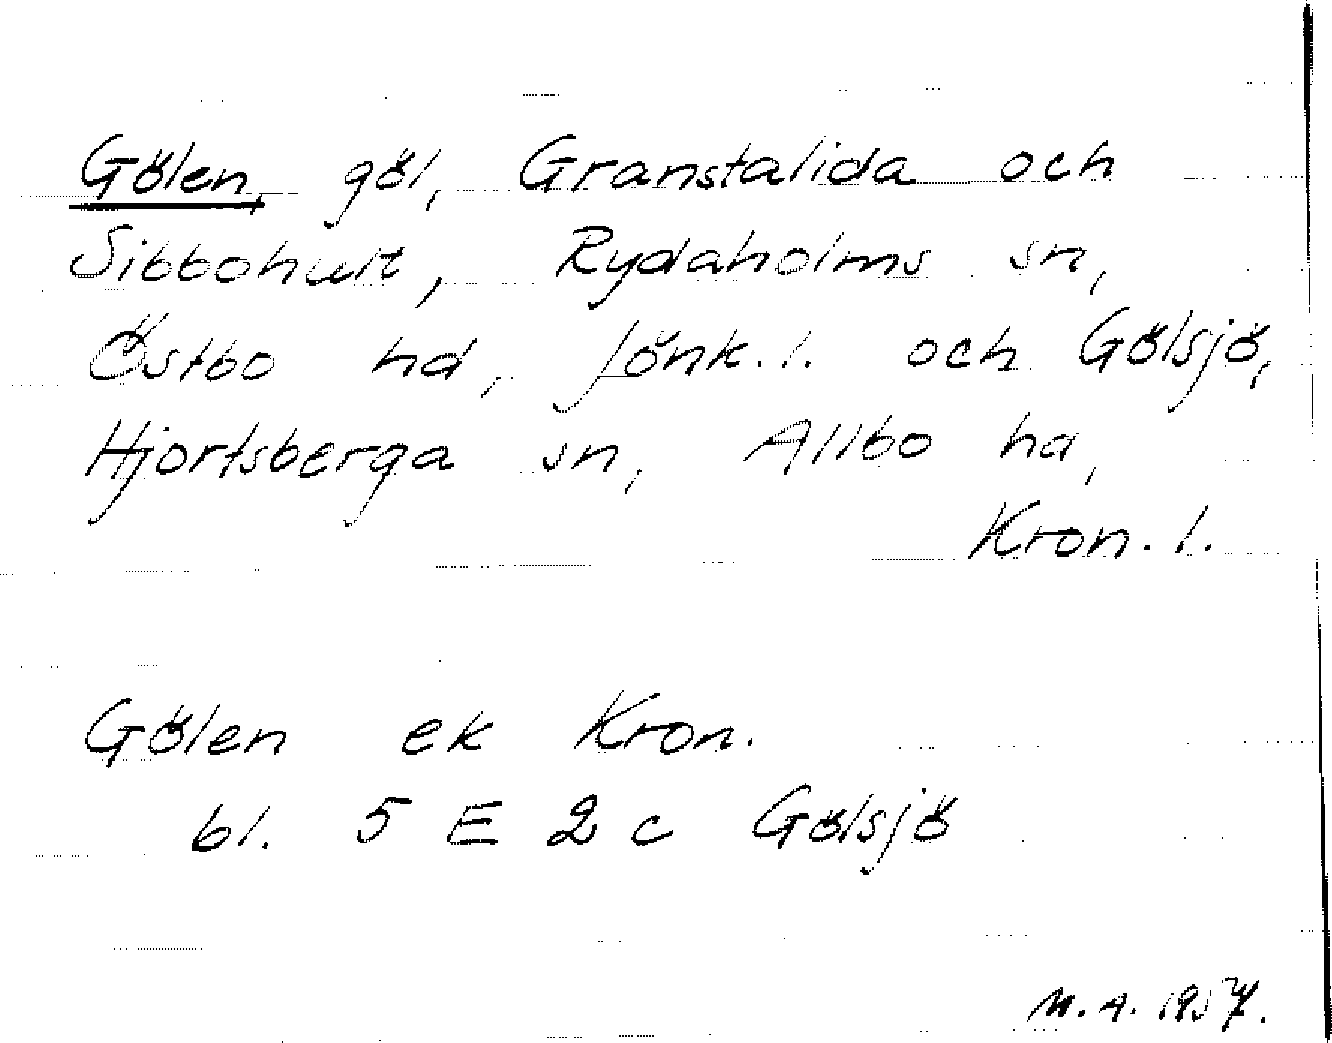 Gölen, göl, Granstalida och
Sibbohult, Rydaholms sn,
Östbo hd, Jönk. l. och Gölsjö,
Hjortsberga sn, Allbo hd,
Kron. l.
Gölen ek Kron.
bl. 5 E 2 c Gölsjö
M.A. 1957.